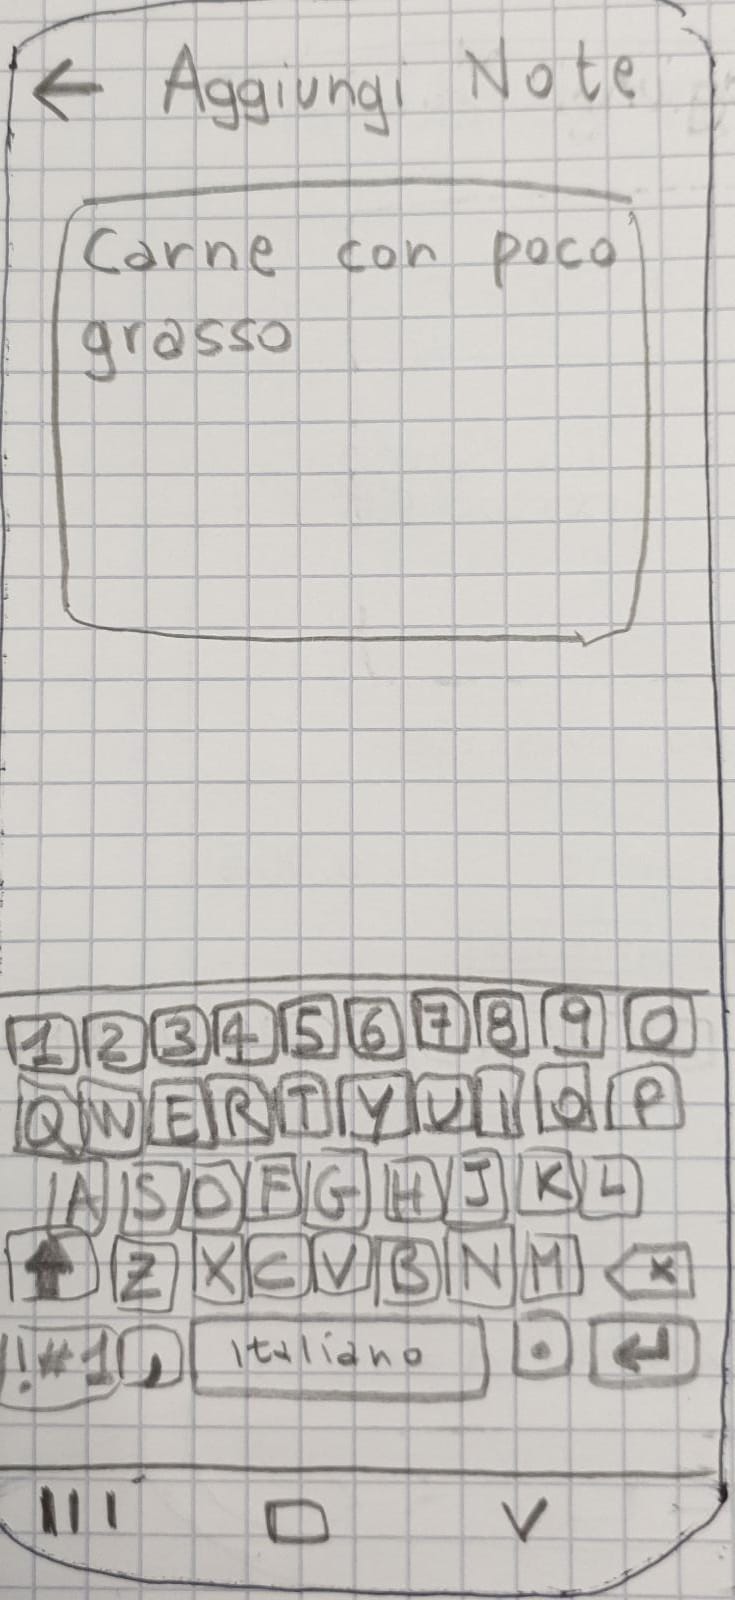 ← Aggiungi Note
Carne con poco
grasso
1 2 3 4 5 6 7 8 9 0
Q W E R T Y U I O P
A S D F G H J K L
Z X C V B N M
!#1 , Italiano .